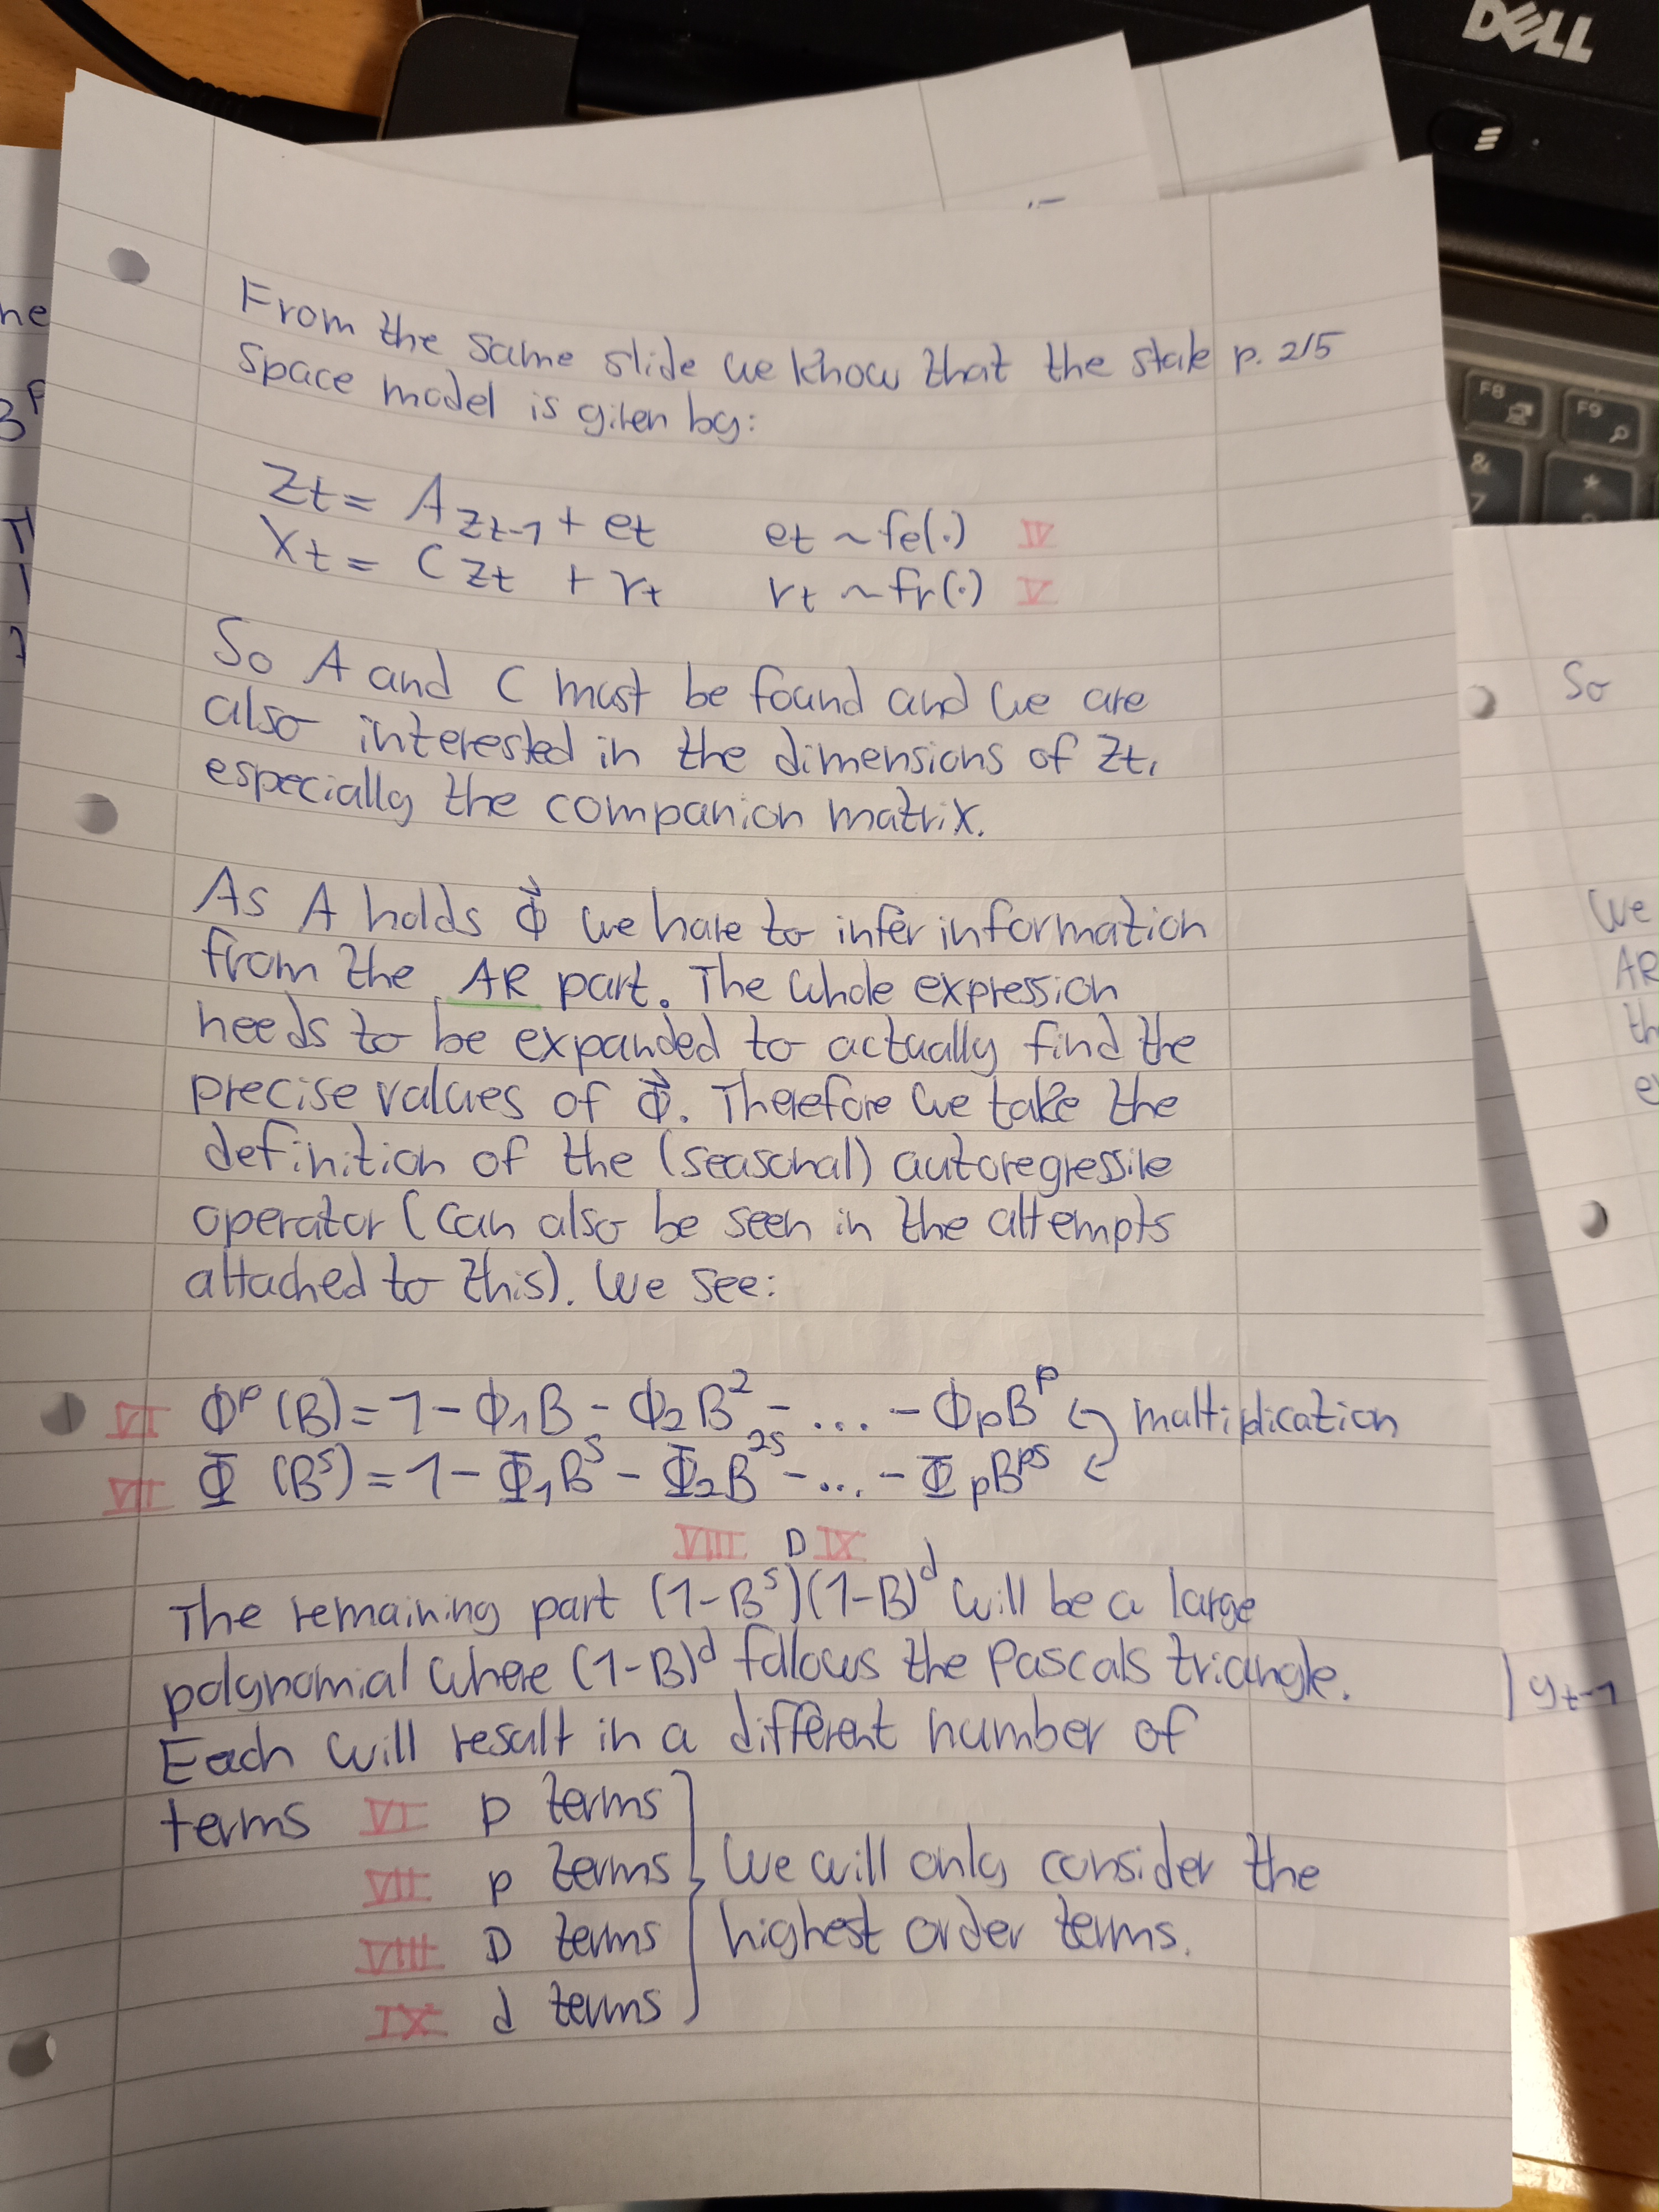 DELL
F8
F9
&
7
*
8
From the same slide we know that the state p. 215
space model is given by:
Zt = A Zt-1 + et et ~ fe(.) IV
Xt = C Zt + rt rt ~ fr(.) V
So A and C must be found and we are
also interested in the dimensions of Zt,
especially the companion matrix.
As A holds ϕ⃗ we have to infer information
from the AR part. The whole expression
needs to be expanded to actually find the
precise values of ϕ⃗. Therefore we take the
definition of the (seasonal) autoregressive
operator (can also be seen in the attempts
attached to this). We see:
VI ϕ^p (B) = 1 - ϕ₁B - ϕ₂B² - ... - ϕpB^p multiplication
VII Φ (B^s) = 1 - Φ₁B^s - Φ₂B^2s - ... - ΦpB^ps
VIII IX
The remaining part (1-B^s)^D (1-B)^d will be a large
polynomial where (1-B)^d follows the Pascals triangle.
Each will result in a different number of
terms VI p terms
VII p terms We will only consider the
VIII D terms highest order terms.
IX d terms
he
So
We
AR
th
e
yt-1